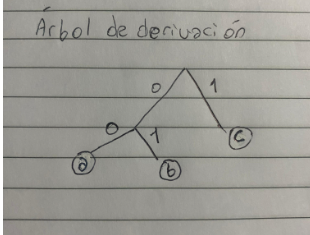 Árbol de derivación
0 1
0 1 c
a b